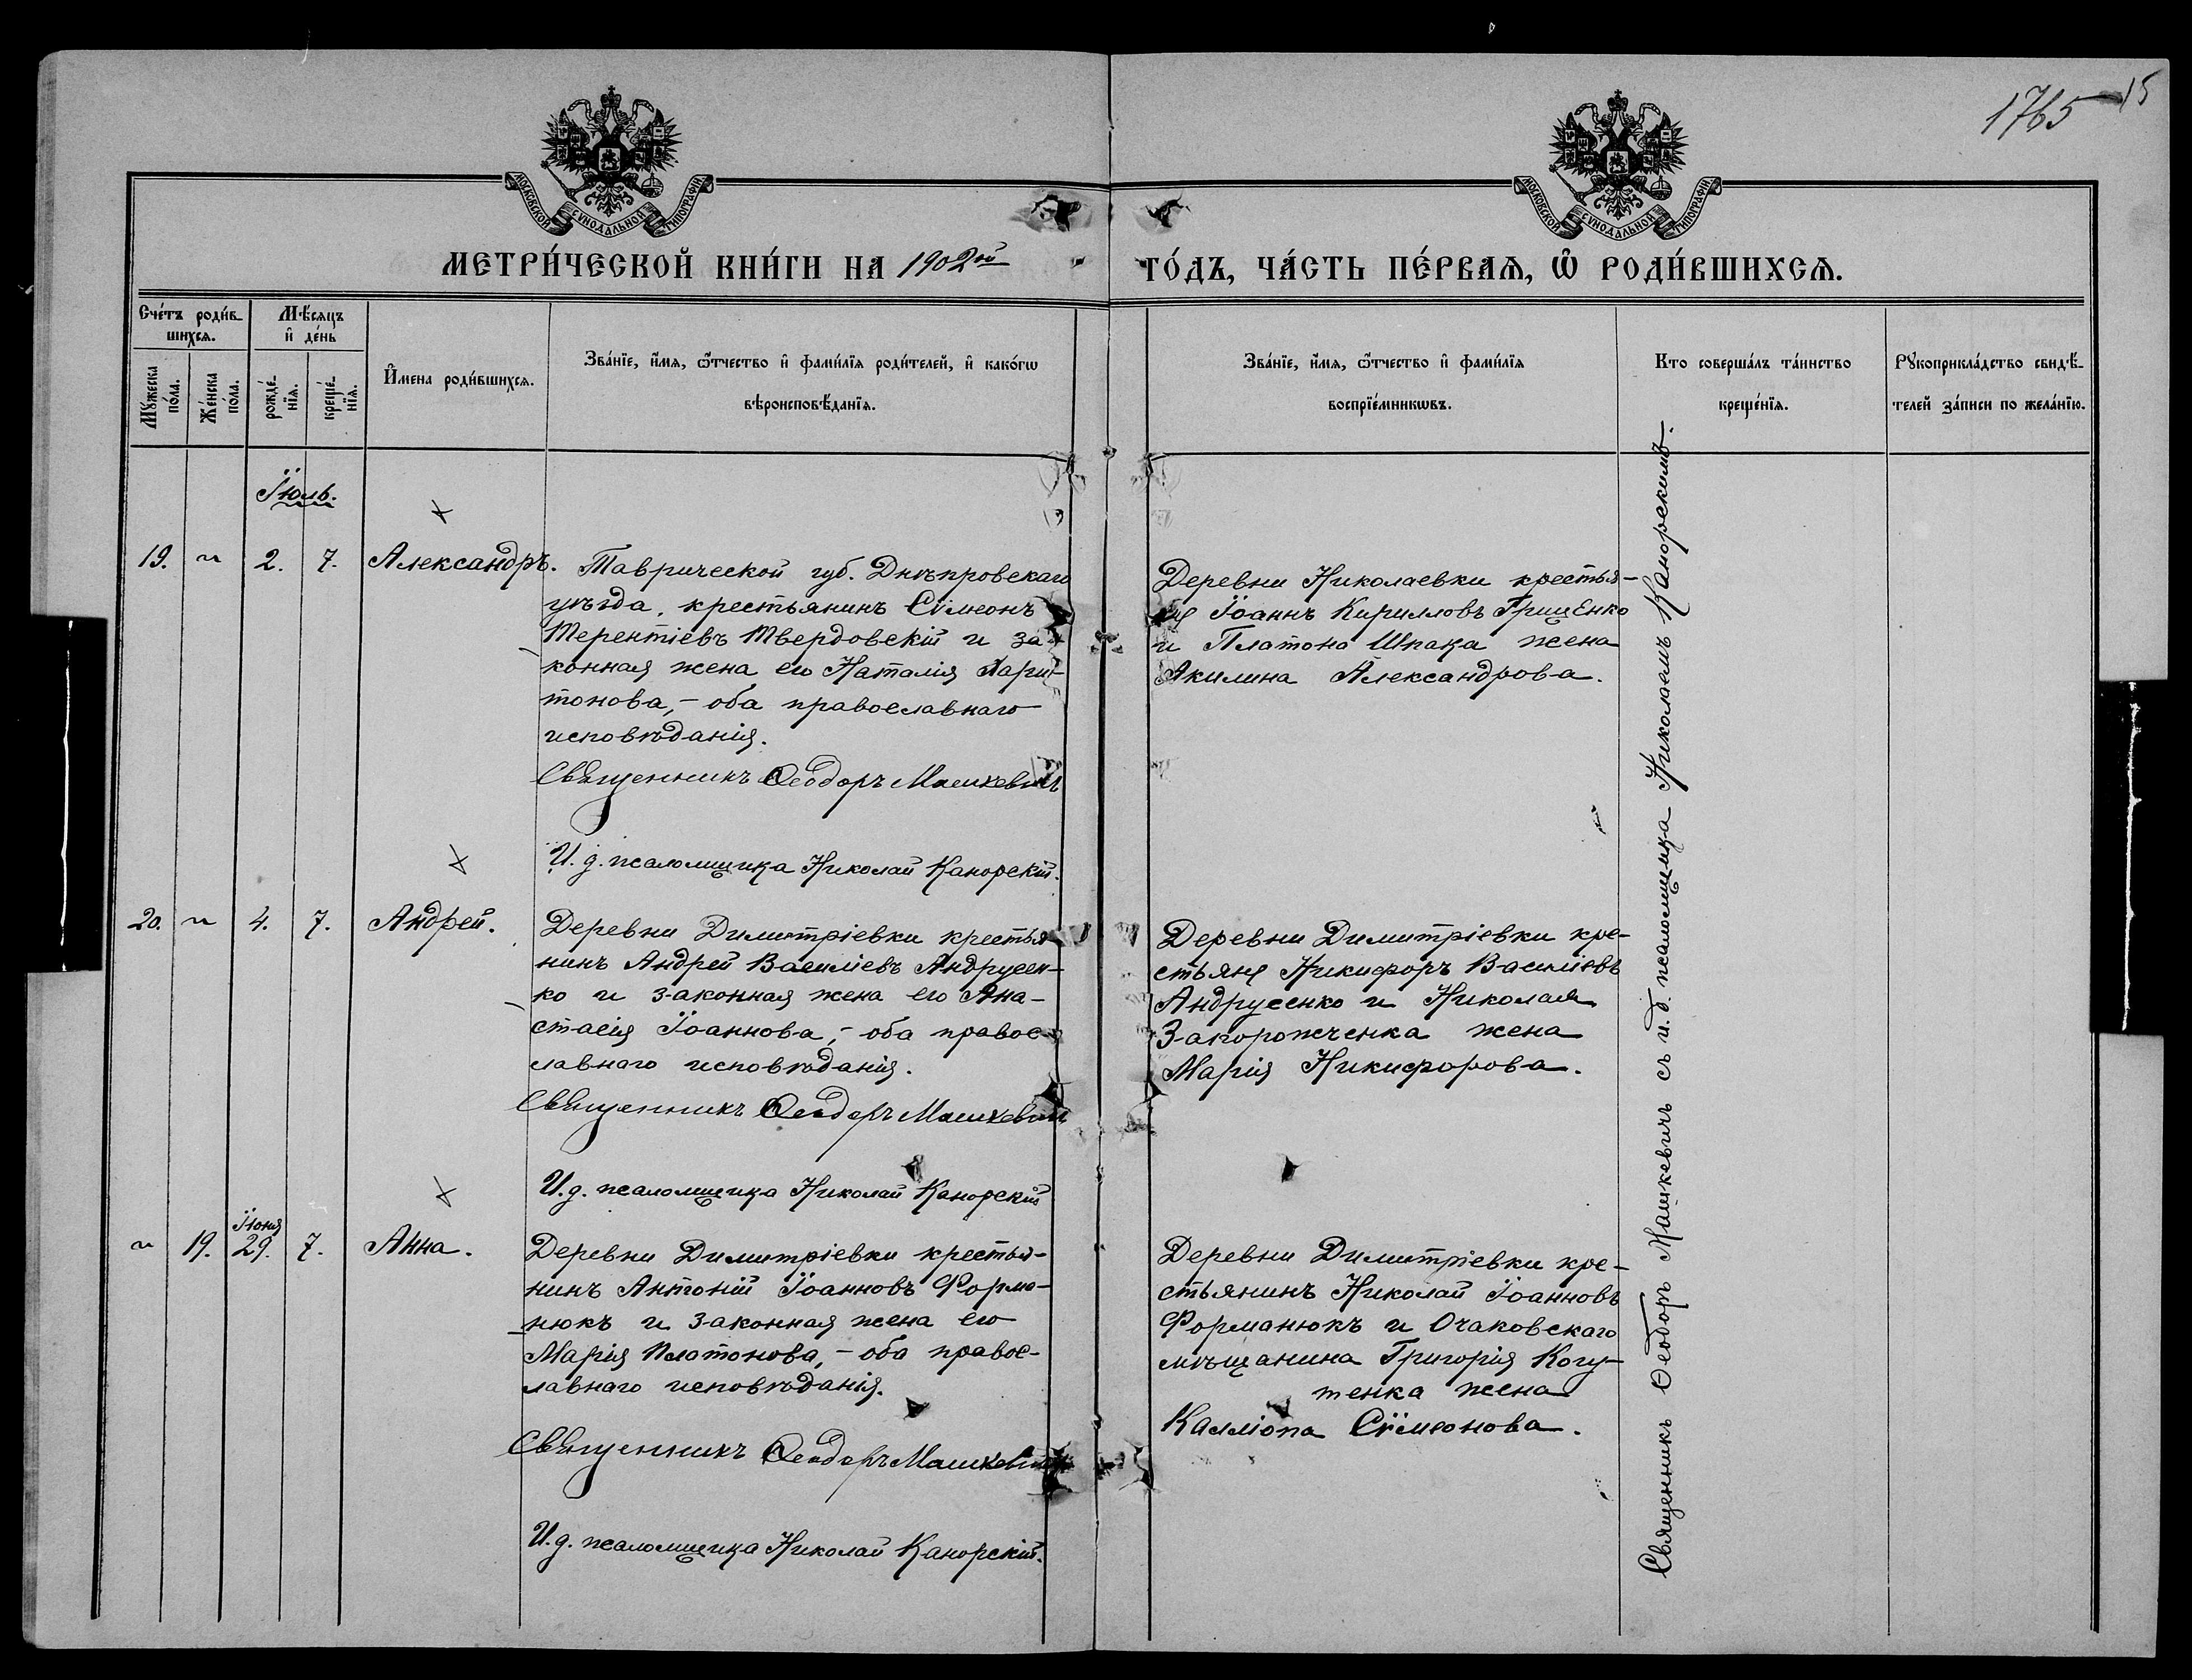 1765 15
МОСКОВСКОЙ СѴНОДАЛЬНОЙ ТИПОГРАФІИ.
МОСКОВСКОЙ СѴНОДАЛЬНОЙ ТИПОГРАФІИ.
МЕТРИ́ЧЕСКОЙ КНИ́ГИ НА 1902ой
ГО́ДЪ, ЧА́СТЬ ПЕ́РВАѦ, Ѡ҆ РОДИ́ВШИХСѦ.
Сче́тъ роди́в-
шихсѧ.
Мѣ́сѧцъ
и҆ де́нь
Мꙋ́жеска
по́ла.
Же́нска
по́ла.
рожде́-
нїѧ.
креще́-
нїѧ.
И҆мена роди́вшихсѧ.
Зва́нїе, и҆́мѧ, ѻ҆́тчество и҆ фами́лїѧ роди́телей, и҆ како́гѡ
вѣроисповѣ́данїѧ.
Зва́нїе, и҆́мѧ, ѻ҆́тчество и҆ фами́лїѧ
воспрїе́мникѡвъ.
Кто соверша́лъ та́инство
креще́нїѧ.
Рꙋкоприкла́дство свидѣ́-
телей за́писи по жела́нїю.
Іюль.
19. " 2. 7. Александръ.
Таврической губ. Днѣпровскаго
уѣзда, крестьянинъ Сѷмеонъ
Терентіевъ Твердовскій и за-
конная жена его Наталія Хари-
тонова, – оба православнаго
исповѣданія.
Священникъ Ѳеодоръ Машкевичъ
И. д. псаломщика Николай Канорскій.
Деревни Николаевки крестья-
не Іоаннъ Кирилловъ Грищенко
и Платона Шпака жена
Акилина Александрова.
20. " 4. 7. Андрей.
Деревни Димитріевки крестья-
нинъ Андрей Василіевъ Андрусен-
ко и законная жена его Ана-
стасія Іоаннова, – оба правос-
лавнаго исповѣданія.
Священникъ Ѳеодоръ Машкевичъ
И. д. псаломщика Николай Канорскій
Деревни Димитріевки кре-
стьяне Никифоръ Василіевъ
Андрусенко и Николая
Запорожченка жена
Марія Никифорова.
" 19. Іюня 29. 7. Анна.
Деревни Димитріевки крестья-
нинъ Антоній Іоанновъ Форма-
нюкъ и законная жена его
Марія Платонова, – оба правос-
лавнаго исповѣданія.
Священникъ Ѳеодоръ Машкевичъ
И. д. псаломщика Николай Канорскій.
Деревни Димитріевки кре-
стьянинъ Николай Іоанновъ
Форманюкъ и Очаковскаго
мѣщанина Григорія Когу-
тенка жена
Калліопа Сѷмеонова.
Священникъ Ѳеодоръ Машкевичъ съ и. д. псаломщика Николаемъ Канорскимъ.